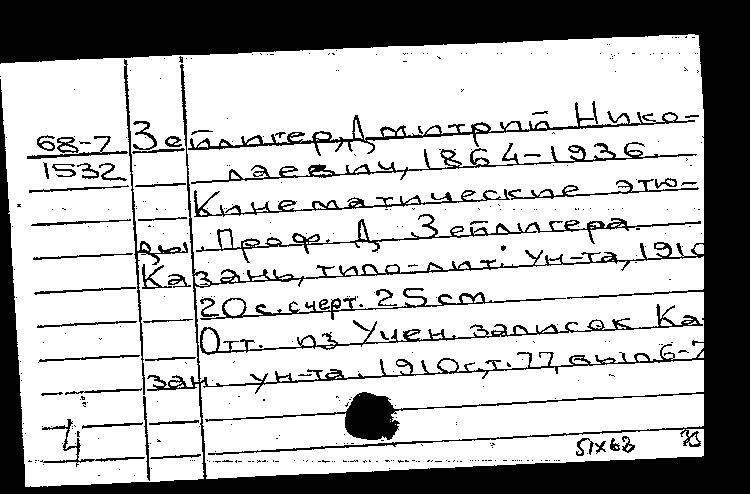 68-7 Зейлигер, Дмитрий Нико=
1532 лаевич, 1864-1936.
Кинематические этю=
ды. Проф. Д. Зейлигера.
Казань, типо-лит. Ун-та, 1910
20 с. с черт. 25 см.
Отт. из Учен. записок Ка-
зан. ун-та. 1910 г., т. 77, вып. 6-7
4
51X63